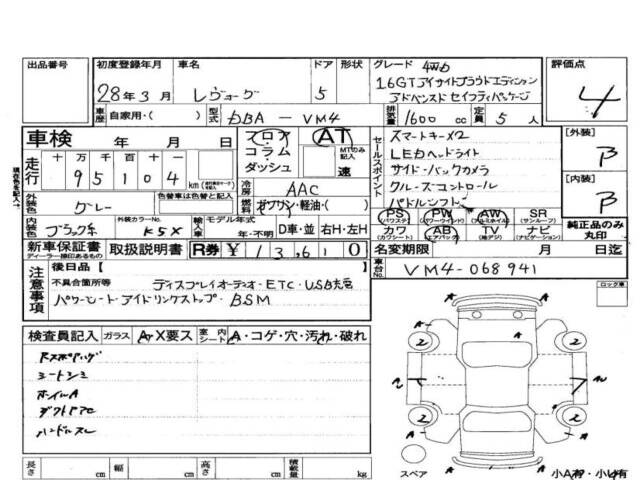 出品番号 初度登録年月 車名 ドア 形状 グレード 4WD 評価点
28年3月 レヴォーグ 5 1.6GTアイサイトプラウドエディション
アドバンスドセイフティパッケージ 4
車歴 自家用・( ) 型式 DBA - VM4 排気量 1600 cc 定員 5 人
車検 年 月 日 フロア コラム・ ダッシュ AT MTのみ記入 速
セールスポイント
スマートキーX2
LEDヘッドライト
サイド・バックカメラ
クルーズコントロール
パドルシフト
[外装] B
[内装] B
走行 十万 万 千 百 十 一
9 5 1 0 4 km
冷房 AAC
外装色 グレー 色替車は色替と記入 燃料 ガソリン・軽油・( )
PS (パワステ) PW (パワーウインド) AW (アルミホイル) SR (サンルーフ)
カワ (カワシート) AB (エアバック) TV (地デジ) ナビ (ナビゲーション)
純正品のみ丸印
内装色 ブラック系 外装カラーNo. K5X 輸入車 モデル年式 年・不明 D車・並 右H・左H
新車保証書 ディーラー捺印あるもの 取扱説明書 R券 ¥ 13,610 名変期限 月 日迄
車台No. VM4-068941
注意事項 後日品 [ ]
不具合箇所等 ディスプレイオーディオ・ETC・USB
パワーシート・アイドリングストップ・BSM
ロック車
検査員記入 ガラス A・X要ス 室内シート A・コゲ・穴・汚れ・破れ
シートシミ
ホイルA
ハンドルスレ
A A
2 2
A A
2 2
A A A
長さ cm 幅 cm 高さ cm 積載量 kg
スペア 小A有・小U有